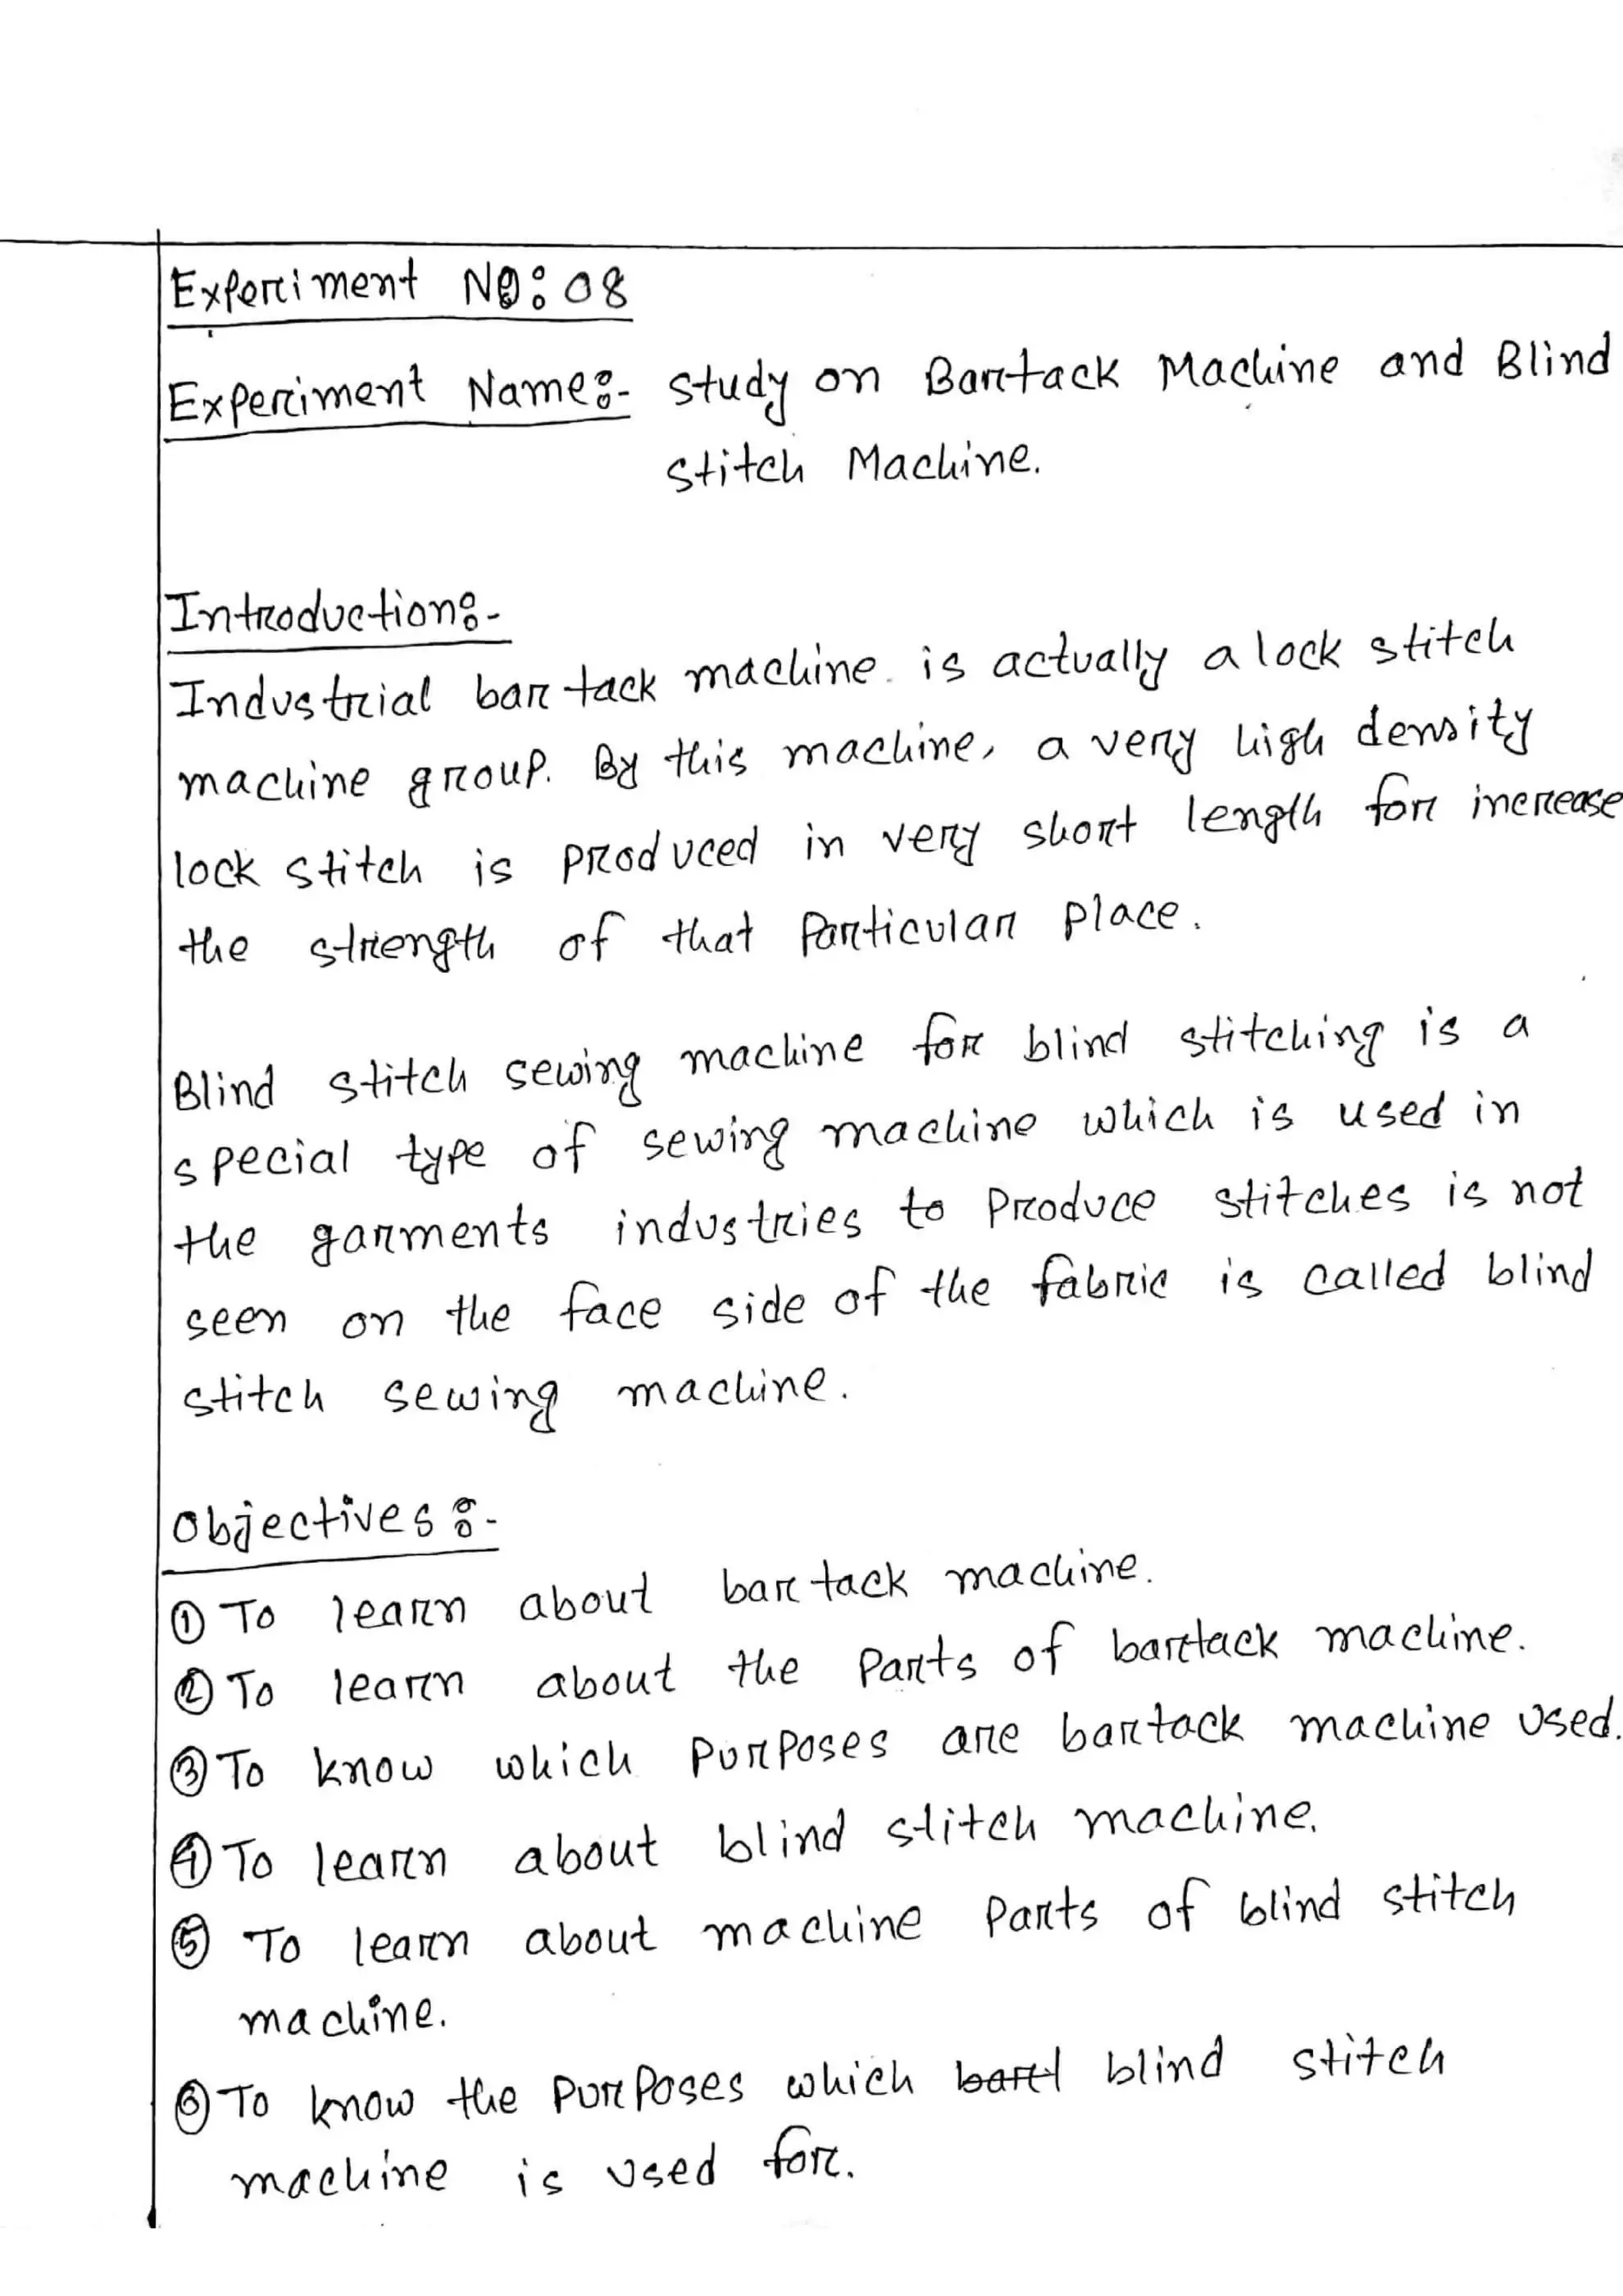 Experiment No: 08
Experiment Name:- Study on Bartack Machine and Blind
Stitch Machine.
Introduction:-
Industrial bar tack machine is actually a lock stitch
machine group. By this machine, a very high density
lock stitch is produced in very short length for increase
the strength of that Particular place.
Blind stitch sewing machine for blind stitching is a
special type of sewing machine which is used in
the garments industries to Produce stitches is not
seen on the face side of the fabric is called blind
stitch sewing machine.
Objectives:-
① To learn about bar tack machine.
② To learn about the Parts of bartack machine.
③ To know which Purposes are bartack machine used.
④ To learn about blind stitch machine.
⑤ To learn about machine Parts of blind stitch
machine.
⑥ To know the Purposes which blind stitch
machine is used for.